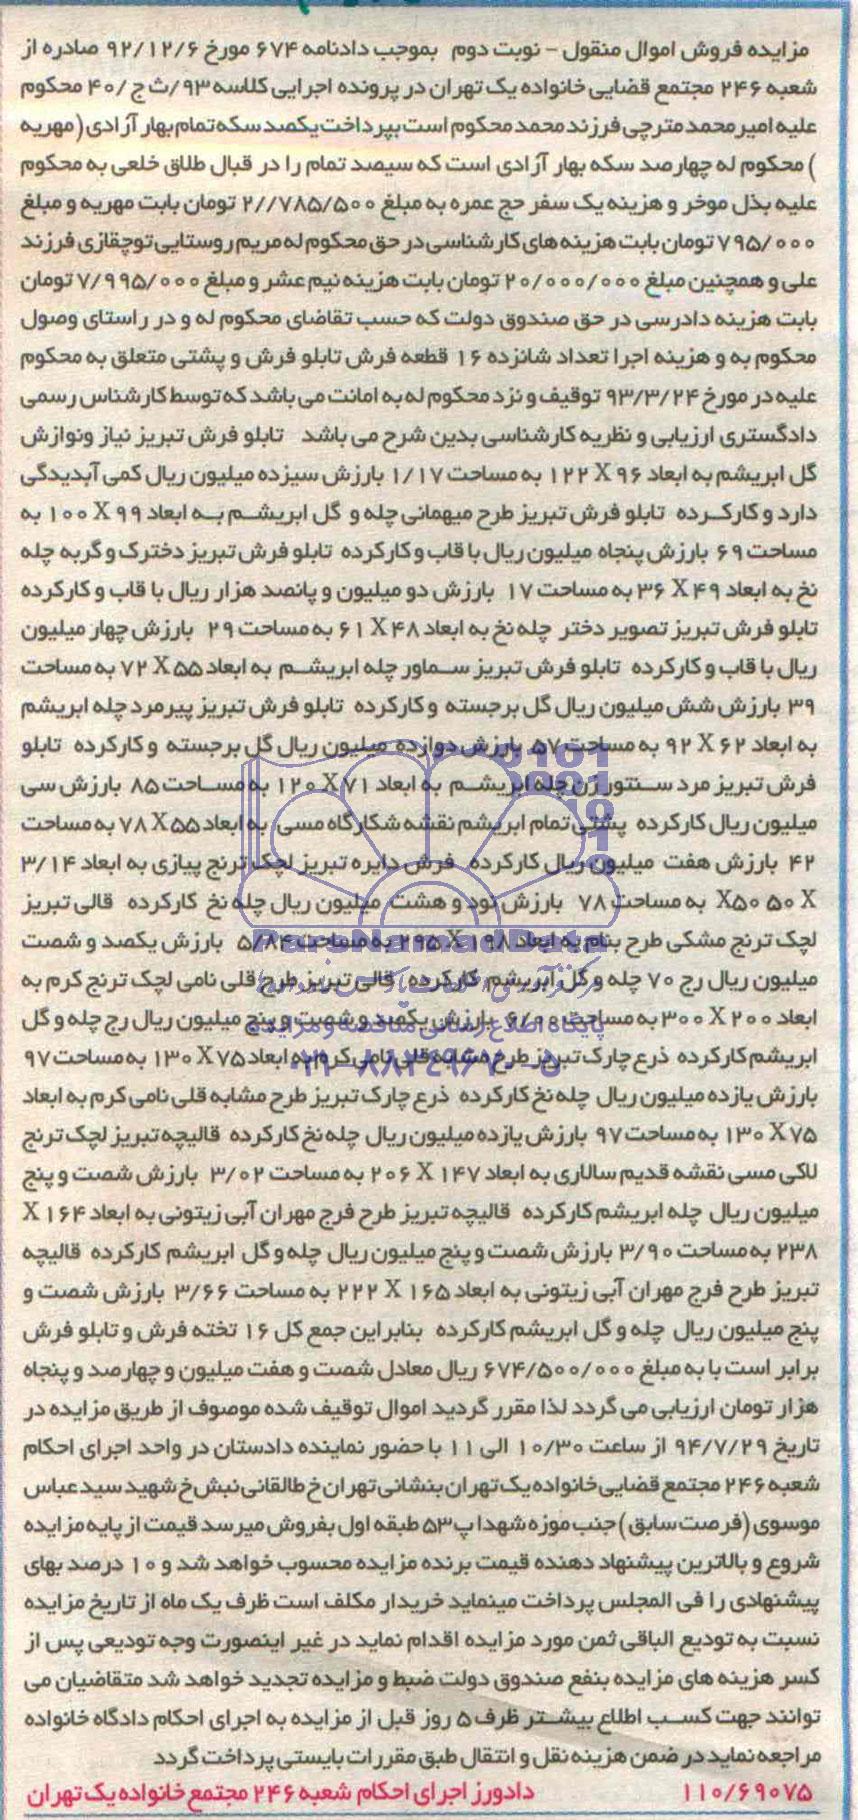 مزایده فروش اموال منقول - نوبت دوم بموجب دادنامه ۶۷۴ مورخ ۹۲/۱۲/۶ صادره از
شعبه ۲۴۶ مجتمع قضایی خانواده یک تهران در پرونده اجرایی کلاسه ۹۳/ث ج /۴۰ محکوم
علیه امیر محمد مترچی فرزند محمد محکوم است بپرداخت یکصد سکه تمام بهار آزادی (مهریه
) محکوم له چهارصد سکه بهار آزادی است که سیصد تمام را در قبال طلاق خلعی به محکوم
علیه بذل موخر و هزینه یک سفر حج عمره به مبلغ ۲//۷۸۵/۵۰۰ تومان بابت مهریه و مبلغ
۷۹۵/۰۰۰ تومان بابت هزینه های کارشناسی در حق محکوم له مریم روستایی توچقازی فرزند
علی و همچنین مبلغ ۲۰/۰۰۰/۰۰۰ تومان بابت هزینه نیم عشر و مبلغ ۷/۹۹۵/۰۰۰ تومان
بابت هزینه دادرسی در حق صندوق دولت که حسب تقاضای محکوم له و در راستای وصول
محکوم به و هزینه اجرا تعداد شانزده ۱۶ قطعه فرش تابلو فرش و پشتی متعلق به محکوم
علیه در مورخ ۹۳/۳/۲۴ توقیف و نزد محکوم له به امانت می باشد که توسط کارشناس رسمی
دادگستری ارزیابی و نظریه کارشناسی بدین شرح می باشد تابلو فرش تبریز نیاز ونوازش
گل ابریشم به ابعاد ۹۶ X ۱۲۲ به مساحت ۱/۱۷ بارزش سیزده میلیون ریال کمی آبدیدگی
دارد و کارکرده تابلو فرش تبریز طرح میهمانی چله و گل ابریشم به ابعاد ۹۹ X ۱۰۰ به
مساحت ۶۹ بارزش پنجاه میلیون ریال با قاب و کارکرده تابلو فرش تبریز دخترک و گربه چله
نخ به ابعاد ۴۹ X ۳۶ به مساحت ۱۷ بارزش دو میلیون و پانصد هزار ریال با قاب و کارکرده
تابلو فرش تبریز تصویر دختر چله نخ به ابعاد ۴۸ X ۶۱ به مساحت ۲۹ بارزش چهار میلیون
ریال با قاب و کارکرده تابلو فرش تبریز سماور چله ابریشم به ابعاد ۵۵ X ۷۲ به مساحت
۳۹ بارزش شش میلیون ریال گل برجسته و کارکرده تابلو فرش تبریز پیرمرد چله ابریشم
به ابعاد ۶۲ X ۹۲ به مساحت ۵۷ بارزش دوازده میلیون ریال گل برجسته و کارکرده تابلو
فرش تبریز مرد سنتور زن چله ابریشم به ابعاد ۷۱ X ۱۲۰ به مساحت ۸۵ بارزش سی
میلیون ریال کارکرده پشتی تمام ابریشم نقشه شکارگاه مسی به ابعاد ۵۵ X ۷۸ به مساحت
۴۲ بارزش هفت میلیون ریال کارکرده فرش دایره تبریز لچک ترنج پیازی به ابعاد ۳/۱۴
X ۵۰ X۵۰ به مساحت ۷۸ بارزش نود و هشت میلیون ریال چله نخ کارکرده قالی تبریز
لچک ترنج مشکی طرح بنام به ابعاد ۱۹۸ X ۲۹۵ به مساحت ۵/۸۴ بارزش یکصد و شصت
میلیون ریال رج ۷۰ چله و گل ابریشم کارکرده قالی تبریز طرح قلی نامی لچک ترنج کرم به
ابعاد ۲۰۰ X ۳۰۰ به مساحت ۶/۰۰ بارزش یکصد و شصت و پنج میلیون ریال رج چله و گل
ابریشم کارکرده ذرع چارک تبریز طرح مشابه قلی نامی کرم به ابعاد ۷۵ X ۱۳۰ به مساحت ۹۷
بارزش یازده میلیون ریال چله نخ کارکرده ذرع چارک تبریز طرح مشابه قلی نامی کرم به ابعاد
۷۵ X ۱۳۰ به مساحت ۹۷ بارزش یازده میلیون ریال چله نخ کارکرده قالیچه تبریز لچک ترنج
لاکی مسی نقشه قدیم سالاری به ابعاد ۱۴۷ X ۲۰۶ به مساحت ۳/۰۲ بارزش شصت و پنج
میلیون ریال چله ابریشم کارکرده قالیچه تبریز طرح فرج مهران آبی زیتونی به ابعاد ۱۶۴ X
۲۳۸ به مساحت ۳/۹۰ بارزش شصت و پنج میلیون ریال چله و گل ابریشم کارکرده قالیچه
تبریز طرح فرج مهران آبی زیتونی به ابعاد ۱۶۵ X ۲۲۲ به مساحت ۳/۶۶ بارزش شصت و
پنج میلیون ریال چله و گل ابریشم کارکرده بنابراین جمع کل ۱۶ تخته فرش و تابلو فرش
برابر است با به مبلغ ۶۷۴/۵۰۰/۰۰۰ ریال معادل شصت و هفت میلیون و چهارصد و پنجاه
هزار تومان ارزیابی می گردد لذا مقرر گردید اموال توقیف شده موصوف از طریق مزایده در
تاریخ ۹۴/۷/۲۹ از ساعت ۱۰/۳۰ الی ۱۱ با حضور نماینده دادستان در واحد اجرای احکام
شعبه ۲۴۶ مجتمع قضایی خانواده یک تهران بنشانی تهران خ طالقانی نبش خ شهید سید عباس
موسوی (فرصت سابق) جنب موزه شهدا پ ۵۳ طبقه اول بفروش میرسد قیمت از پایه مزایده
شروع و بالاترین پیشنهاد دهنده قیمت برنده مزایده محسوب خواهد شد و ۱۰ درصد بهای
پیشنهادی را فی المجلس پرداخت مینماید خریدار مکلف است ظرف یک ماه از تاریخ مزایده
نسبت به تودیع الباقی ثمن مورد مزایده اقدام نماید در غیر اینصورت وجه تودیعی پس از
کسر هزینه های مزایده بنفع صندوق دولت ضبط و مزایده تجدید خواهد شد متقاضیان می
توانند جهت کسب اطلاع بیشتر ظرف ۵ روز قبل از مزایده به اجرای احکام دادگاه خانواده
مراجعه نماید در ضمن هزینه نقل و انتقال طبق مقررات بایستی پرداخت گردد
۱۱۰/۶۹۰۷۵ دادورز اجرای احکام شعبه ۲۴۶ مجتمع خانواده یک تهران
ParsNamadData
پایگاه اطلاع رسانی مناقصه و مزایده
۰۲۱-۸۸۳۴۹۶۷۰-۵